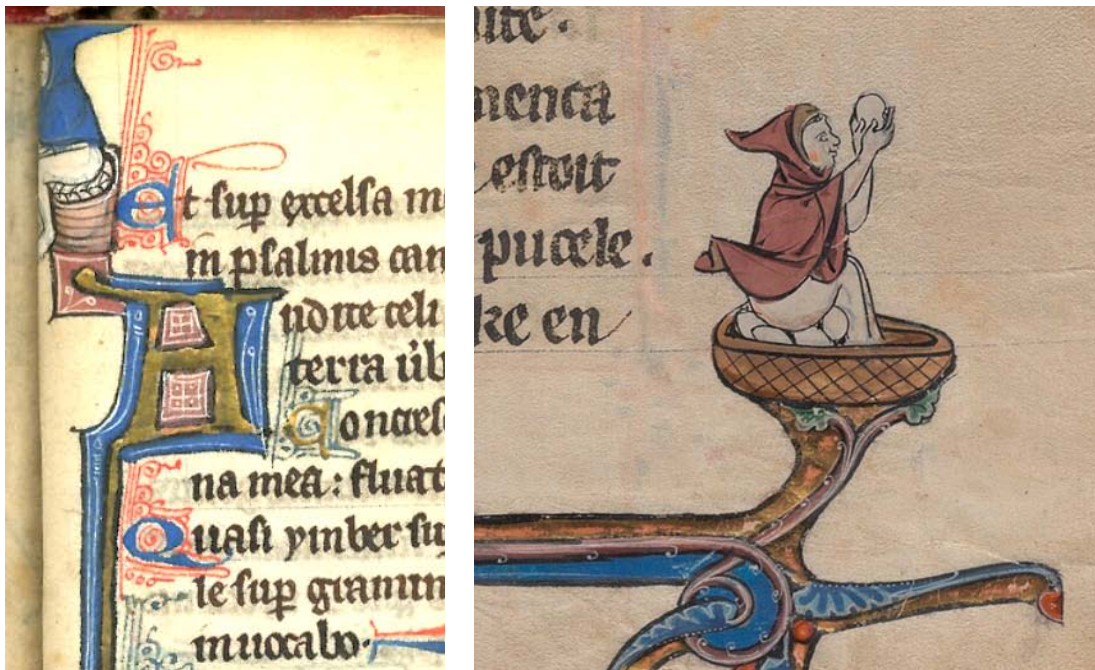 Et sup excelsa m
in psalmis can
Audite celi
terra ūb
Concres
na mea : fluat
Quasi ymber su
le sup gramin
inuocabo.
menca
estoit
pucele.
ke en